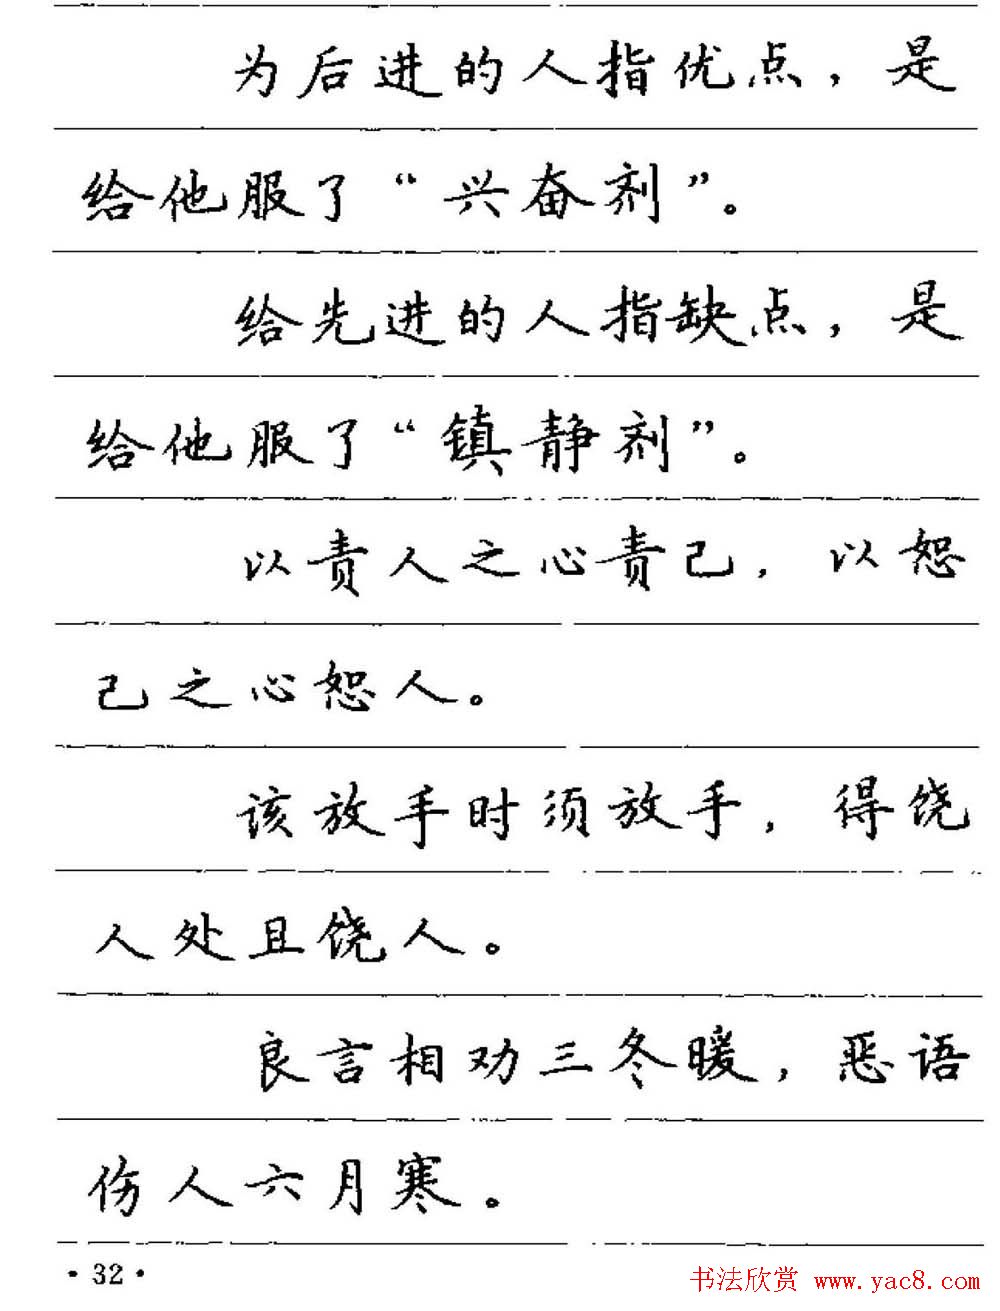 为后进的人指优点，是
给他服了“兴奋剂”。
给先进的人指缺点，是
给他服了“镇静剂”。
以责人之心责己，以恕
己之心恕人。
该放手时须放手，得饶
人处且饶人。
良言相劝三冬暖，恶语
伤人六月寒。
·32·
书法欣赏 www.yac8.com